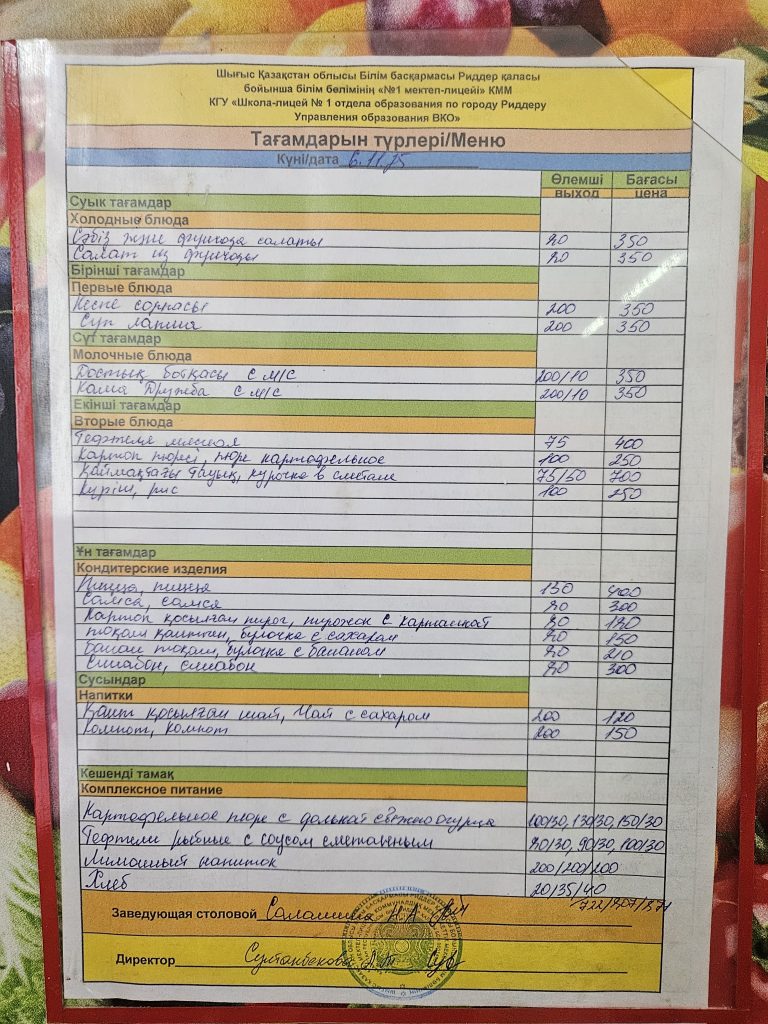 Шығыс Қазақстан облысы Білім басқармасы Риддер қаласы
бойынша білім бөлімінің «№1 мектеп-лицейі» КММ
КГУ «Школа-лицей № 1 отдела образования по городу Риддеру
Управления образования ВКО»
Тағамдарын түрлері/Меню
Күні/дата 6.11.25
Өлемші Бағасы
выход цена
Суык тағамдар
Холодные блюда
Сәбіз және фунчоза салаты 80 350
Салат из фунчозы 80 350
Бірінші тағамдар
Первые блюда
Кеспе сорпасы 200 350
Суп лапша 200 350
Сүт тағамдар
Молочные блюда
Достық ботқасы с м/с 200/10 350
Каша Дружба с м/с 200/10 350
Екінші тағамдар
Вторые блюда
Тефтеля мясная 75 400
Картоп пюресі, пюре картофельное 100 250
Қаймақтағы тауық, курочка в сметане 75/50 700
Күріш, рис 100 250
Ұн тағамдар
Кондитерские изделия
Пицца, пицца 130 400
Самса, самса 80 300
Картоп қосылған пирог, пирожок с картошкой 80 180
тоқаш қантпен, булочка с сахаром 80 150
Банан тоқаш, булочка с бананом 80 210
Синабон, синабон 80 300
Сусындар
Напитки
Қант қосылған шай, Чай с сахаром 200 120
Компот, Компот 200 150
Кешенді тамақ
Комплексное питание
Картофельное пюре с долькой свежего огурца 100/30, 130/30, 150/30
Тефтели рыбные с соусом сметанным 80/30, 90/30, 100/30
Лимонный напиток 200/200/200
Хлеб 20/35/40
Заведующая столовой Н А
Директор Султанбекова А.Т